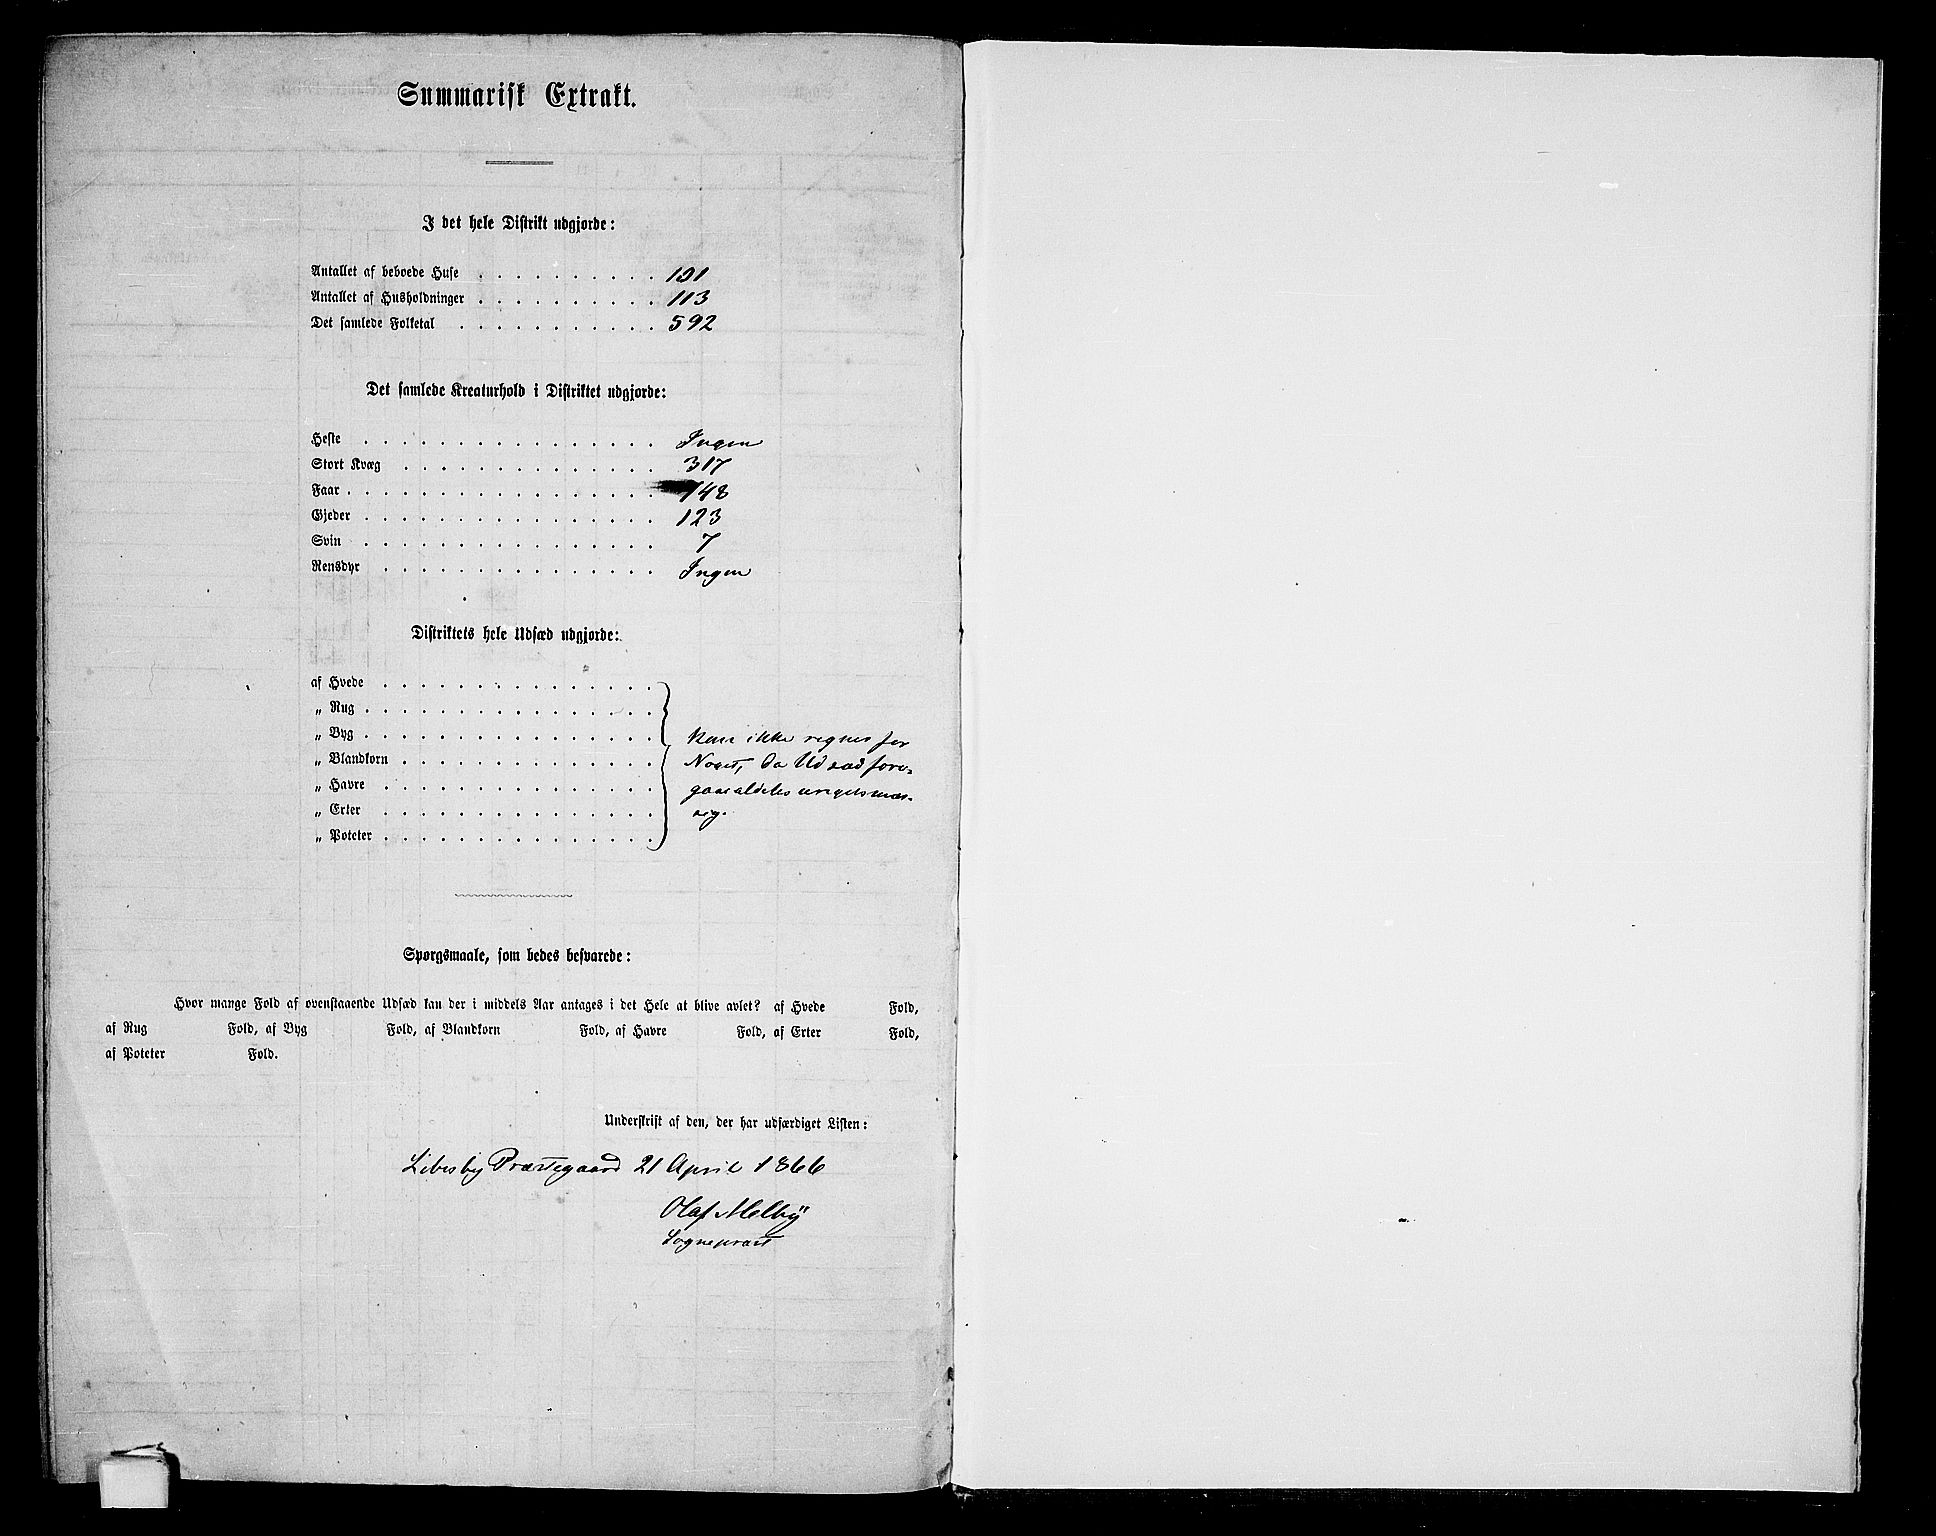 Summarisk Extrakt.
I det hele Distrikt udgjorde:
Antallet af beboede Huse . . . . . . . . . . 101
Antallet af Husholdninger . . . . . . . . . . 113
Det samlede Folketal . . . . . . . . . . . 592
Det samlede Kreaturhold i Distriktet udgjorde:
Heste . . . . . . . . . . . . . . . . Ingen
Stort Kvæg . . . . . . . . . . . . . . 317
Faar . . . . . . . . . . . . . . . . . 148
Gjeder . . . . . . . . . . . . . . . . 123
Svin . . . . . . . . . . . . . . . . 7
Rensdyr . . . . . . . . . . . . . . . Ingen
Distriktets hele Udsæd udgjorde:
af Hvede . . . . . . . . . . . . . . .
„ Rug . . . . . . . . . . . . . . . .
„ Byg . . . . . . . . . . . . . . . . kan ikke regnes for
„ Blandkorn . . . . . . . . . . . . . . Noget, da Udsæd fore-
„ Havre . . . . . . . . . . . . . . . gaar aldeles uregelmæs-
„ Erter . . . . . . . . . . . . . . . sig.
„ Poteter . . . . . . . . . . . . . . .
Spørgsmaale, som bedes besvarede:
Hvor mange Fold af ovenstaaende Udsæd kan der i middels Aar antages i det Hele at blive avlet? af Hvede Fold,
af Rug Fold, af Byg Fold, af Blandkorn Fold, af Havre Fold, af Erter Fold,
af Poteter Fold.
Underskrift af den, der har udfærdiget Listen:
Lebesby Præstegaard 21 April 1866
Olaf Melbÿ
Sognepræst